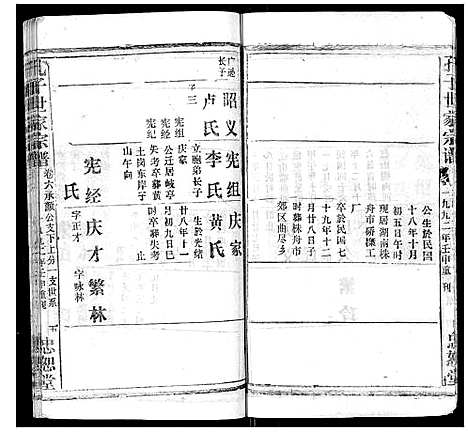 孔子世家宗譜
公生於民國
十八年十月
初五日午時
現居湖南株
洲市硚樑工
厂
卒於民國七
十九年十二
月廿八日子
時葬株洲市
郊区曲尽亨
忠恕堂
广遂
长子
昭义 宪组 庆家
子三
卢氏 李氏 黄氏
宪组
庆家
宪纪
立聰弟长子
生於光绪
廿八年十一
月初九日巳
时卒葬失考
迁公居岐亭
失考卒葬黄
土岗东岸子
山午向
宪经 庆才 繁林
氏
字正才
字咏林
孔子世家宗譜
卷六承源公支下上分
支世系
忠恕堂